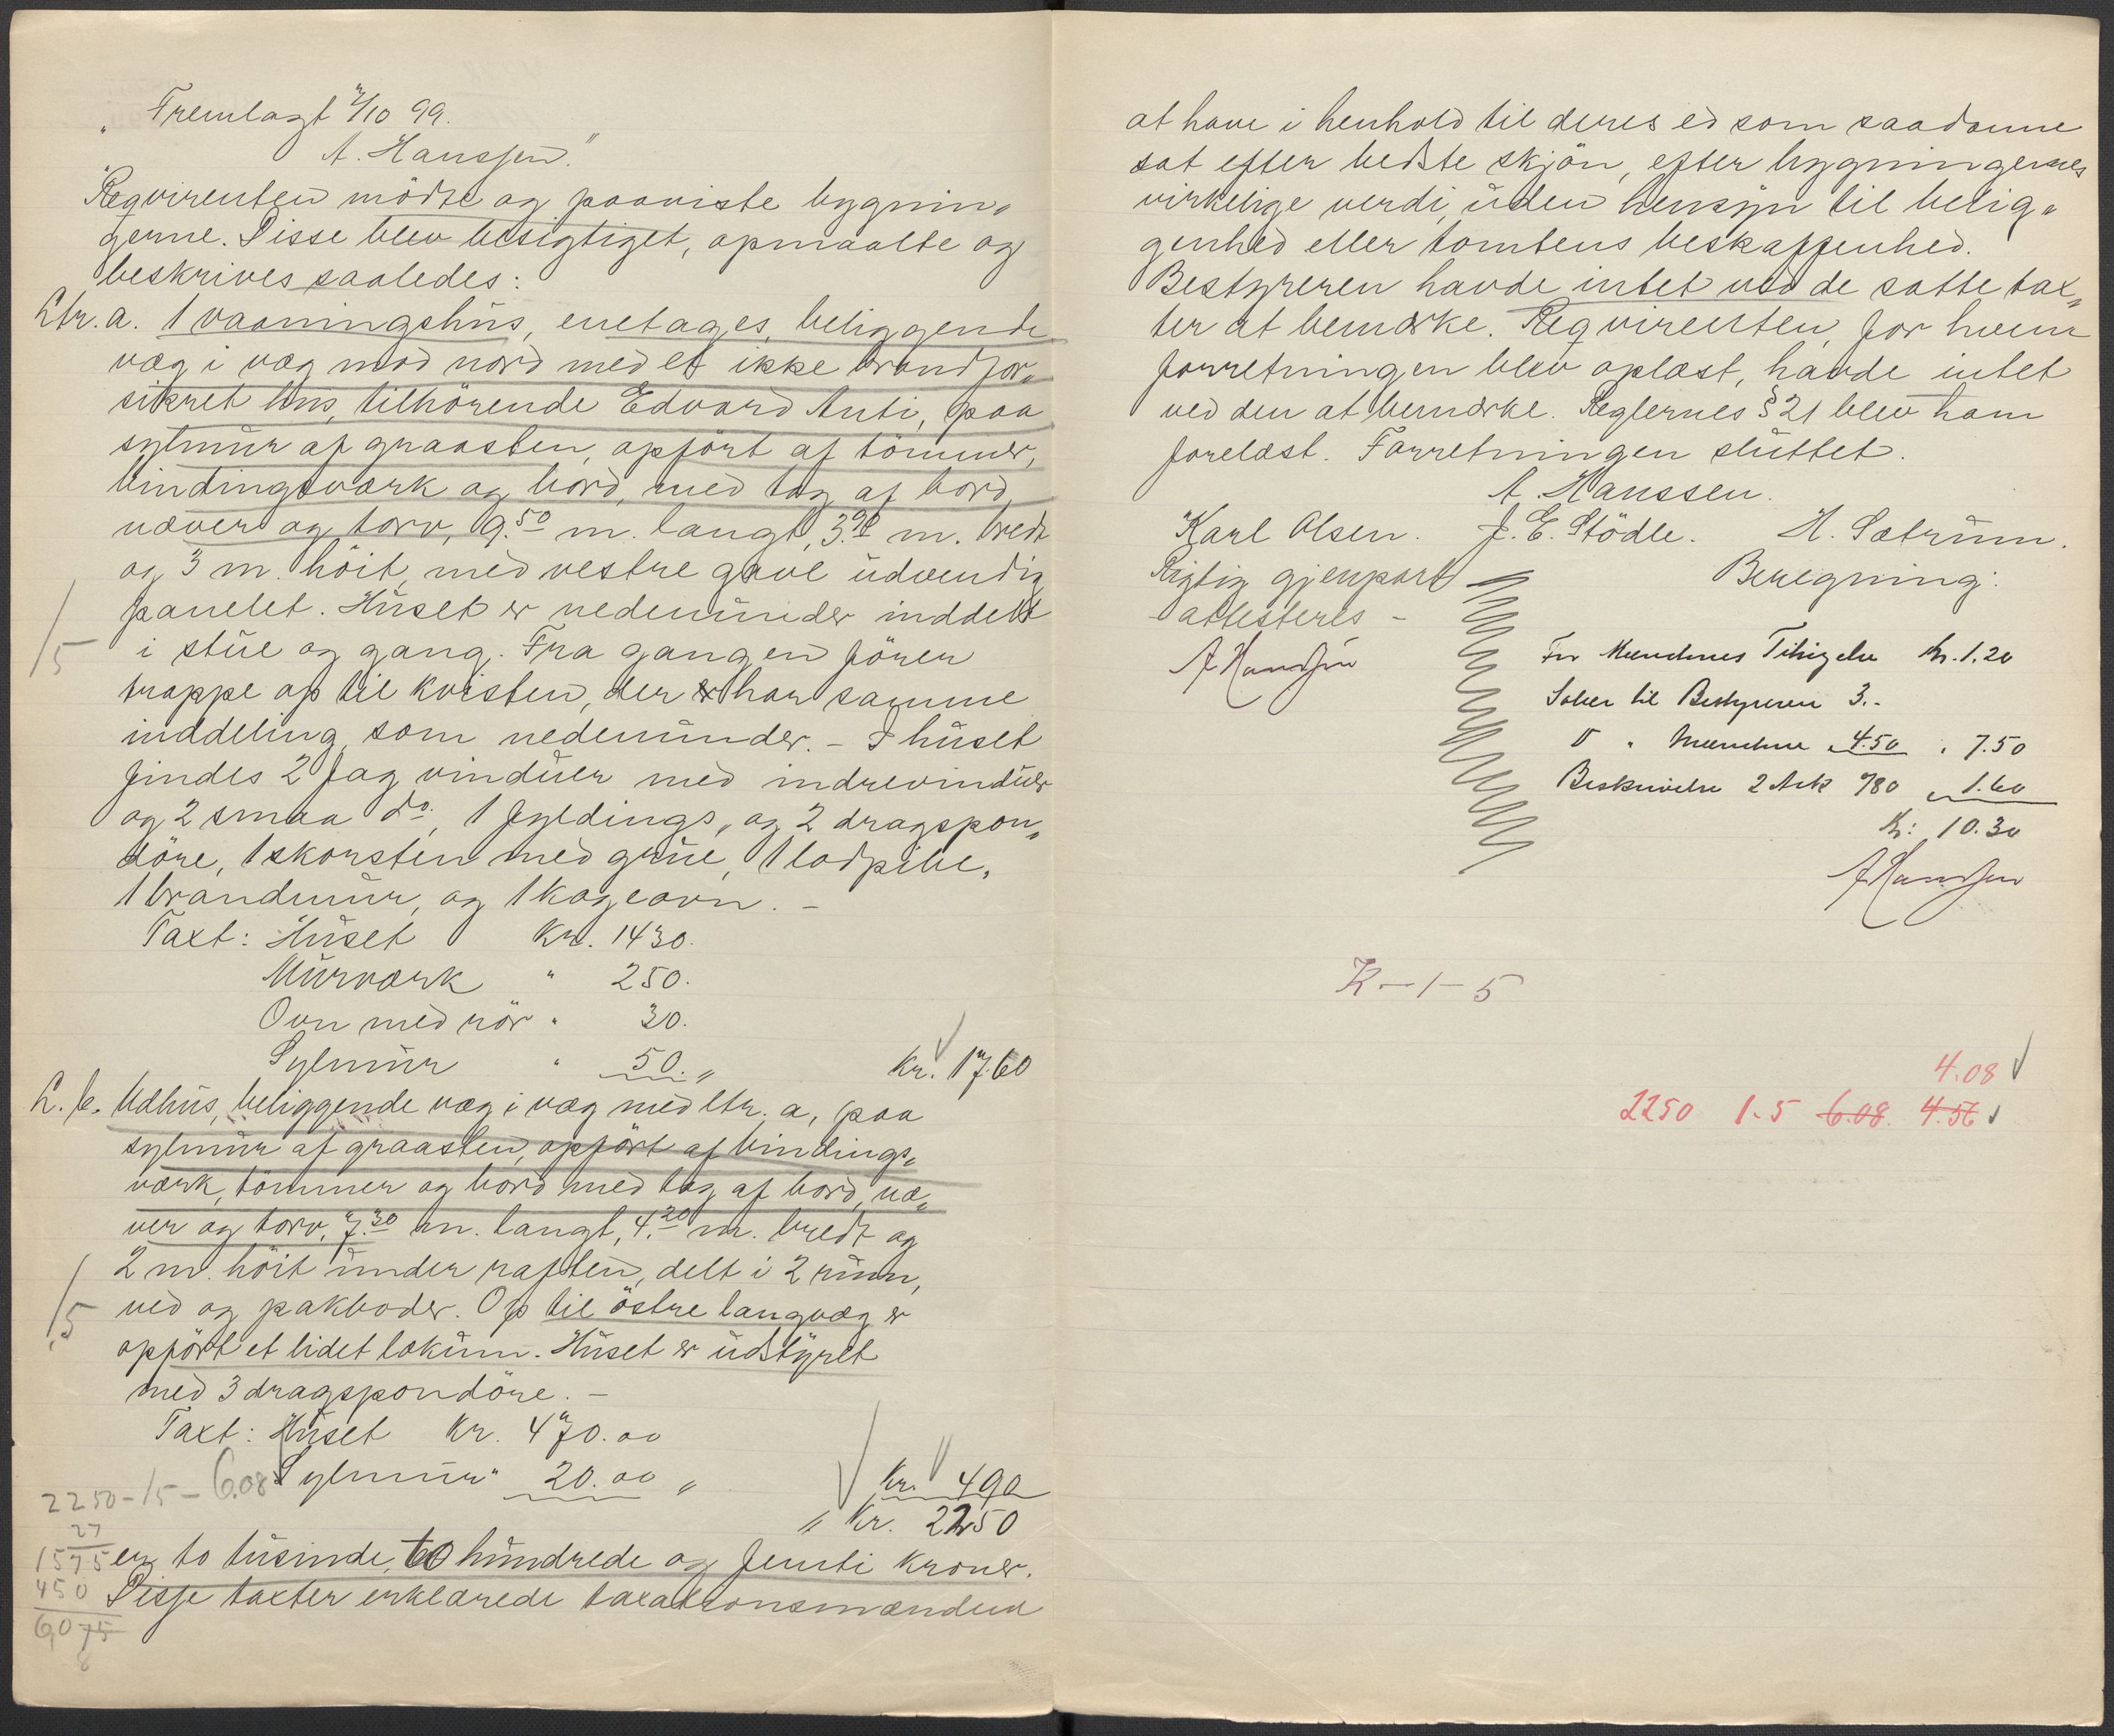 „ Fremlagt 2/10 99.
A. Hanssen."
"Reqvirenten mödte og paaviste bygnin„
gerne. Disse blev besigtiget, opmaalte og
beskrives saaledes:
Ltr. a. 1 vaaningshus, enetages, beliggende
væg i væg mod nord med et ikke brandfor„
sikret hus, tilhörende Edvard Anti, paa
sylmur af graasten, opfört af tömmer,
bindingsværk og bord, med tag af bord,
næver og torv, 9.50 m. langt, 3. m. bredt
og 3 m. höit, med vestre gavl udvendig
panelet. Huset er nedenunder inddelt
i stue og gang. Fra gangen förer
trappe op til kvisten, der har samme
inddeling som nedenunder. - I huset
findes 2 fag vinduer med indrevinduer
og 2 smaa do, 1 fyldings, og 2 dragspon„
döre, 1 skorsten med grue, 1 lodpibe,
1 brandmur, og 1 kogeovn. -
Taxt: Huset Kr. 1430.
Murværk " 250.
Ovn med rör " 30.
Sylmur " 50. „ Kr. 1760
L. b. Udhus, beliggende væg i væg med ltr. a, paa
sylmur af graasten, opfört af bindings„
værk, tömmer og bord med tag af bord, næ„
ver og torv, 7.30 m. langt, 4.20 m. bredt og
2 m. höit under raften, delt i 2 rum,
ved og pakboder. Op til östre langvæg er
opfört et lidet lokum. Huset er udstyret
med 3 dragspondöre. -
Taxt: Huset Kr. 470.00
Sylmur " 20.00 „ Kr. 490
„ Kr. 2250
er to tusinde, to hundrede og femti kroner.
Disse taxter erklærede taxationsmændene
/5
/5
2250-15-6.08
27
1575
450
6,075
8
at have i henhold til deres ed som saadanne
sat efter bedste skjön, efter bygningernes
virkelige verdi, uden hensyn til belig„
genhed eller tomtens beskaffenhed.
Bestyreren havde intet ved de satte tax„
ter at bemærke. Reqvirenten, for hvem
forretningen blev oplæst, havde intet
ved den at bemærke. Reglernes § 21 blev ham
forelæst. Forretningen sluttet.
A. Hanssen.
Karl Olsen. J. E. Stödle. H. Sætrum.
Rigtig gjenpart
attesteres -
A Hanssen
Beregning:
For Mændenes Tilsigelse Kr. 1.20
Salær til Bestyreren 3.-
D " Mændene 4.50 " 7.50
Beskrivelse 2 Ark 780 " 1.60
Kr: 10.30
A Hanssen
K-1-5
4.08
2250 1.5 6.08 4.56